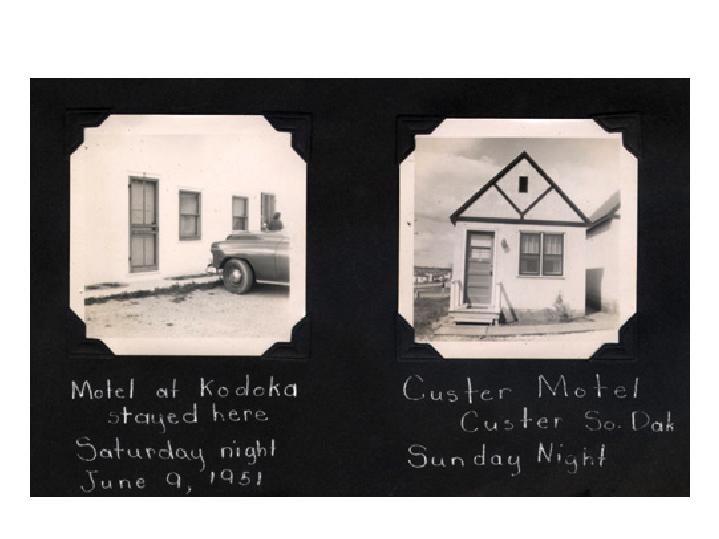 Motel at Kodoka
stayed here
Saturday night
June 9, 1951
Custer Motel
Custer So. Dak
Sunday Night